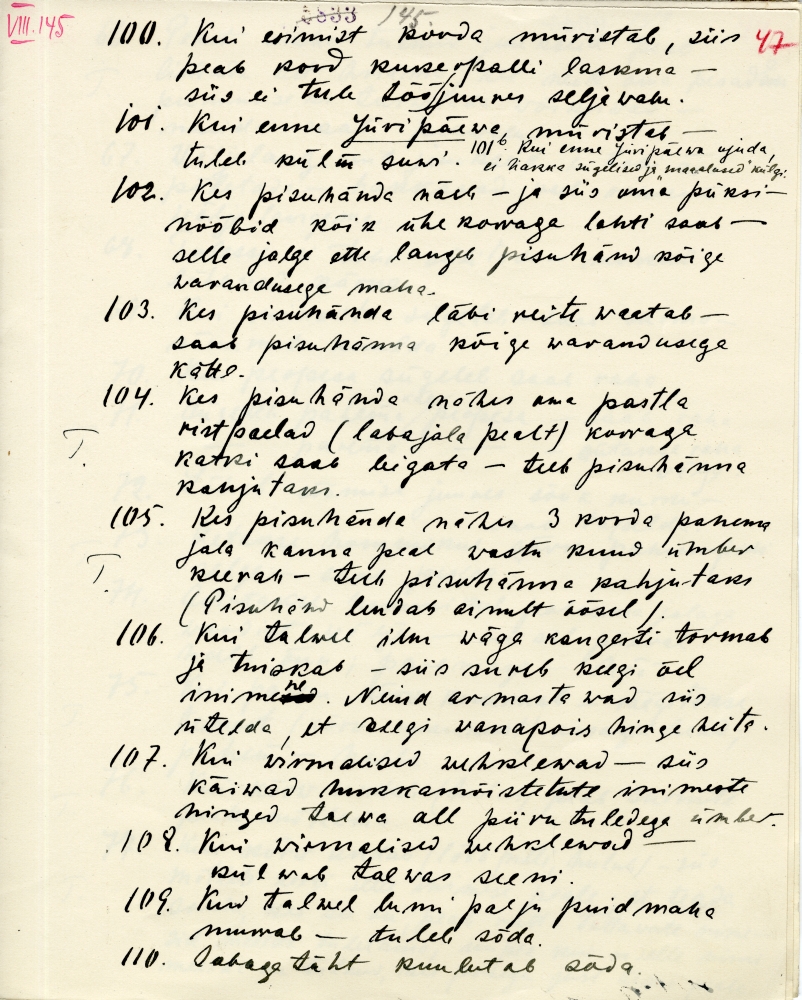 VIII.145
145
47
100. Kui esimist korda müristab, siis
peab kord kukerpalli laskma —
siis ei tule tööjuures seljawalu.
101. Kui enne Jüripäewa, müristab —
tuleb külm suwi. 101b. Kui enne Jüripäewa ujuda,
ei hakka sügelised ja "maaalused" külge.
102. Kes pisuhända näeb — ja siis oma püksi-
nööbid kõik ühe korraga lahti saab —
selle jalge ette langeb pisuhänd kõige
warandusega maha.
103. Kes pisuhända läbi reite waatab —
saab pisuhänna kõige warandusega
kätte.
104. Kes pisuhända nähes oma pastla
ristpaelad (labajala pealt) korraga
T.
katki saab leigata — teeb pisuhänna
kahjutaks.
105. Kes pisuhända nähes 3 korda pahema
jala kanna peal wastu kuud ümber
T.
keerab — teeb pisuhänna kahjutaks
(Pisuhänd lendab ainult öösel).
106. Kui talwel ilm wäga kangesti tormab
ja tuiskab — siis sureb keegi õel
inimene. Neind armastawad siis
ütelda, et keegi wanapois hinge heita.
107. Kui wirmalised wehklewad — siis
käiwad hukkamõistetute inimeste
hinged taewa all piiru tuledega ümber.
108. Kui wirmalised wehklewad —
külwab taewas seeni.
109. Kui talwel lumi palju puid maha
murrab — tuleb sõda.
110. Sabaga täht kuulutab sõda.